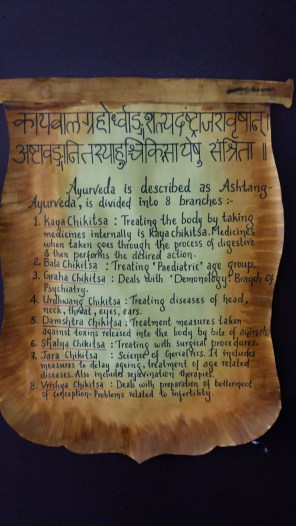 कायबालग्रहोर्ध्वाङ्गशल्यदंष्ट्राजरावृषान्।
अष्टावङ्गानि तस्याहुश्चिकित्सा येषु संश्रिता ॥
Ayurveda is described as Ashtang-
Ayurveda, is divided into 8 branches :-
1. Kaya Chikitsa : Treating the body by taking
medicines internally is kaya chikitsa. Medicines
when taken goes through the process of digestive
& then performs the desired action.
2. Bala Chikitsa : Treating 'Paediatric' age group.
3. Graha Chikitsa : Deals with 'Demonology' Branch of
Psychiatry.
4. Urdhwang Chikitsa : Treating diseases of head,
neck, throat, eyes, ears.
5. Damshtra Chikitsa : Treatment measures taken
against toxins released into the body by bite of animals
6. Shalya Chikitsa : Treating with surgical procedures.
7. Jara Chikitsa : Science of Geriatrics. It includes
measures to delay ageing, treatment of age related
diseases. Also includes rejuvination therapies.
8. Vrishya Chikitsa : Deals with preparation of betterment
of conception-Problems related to infertility.